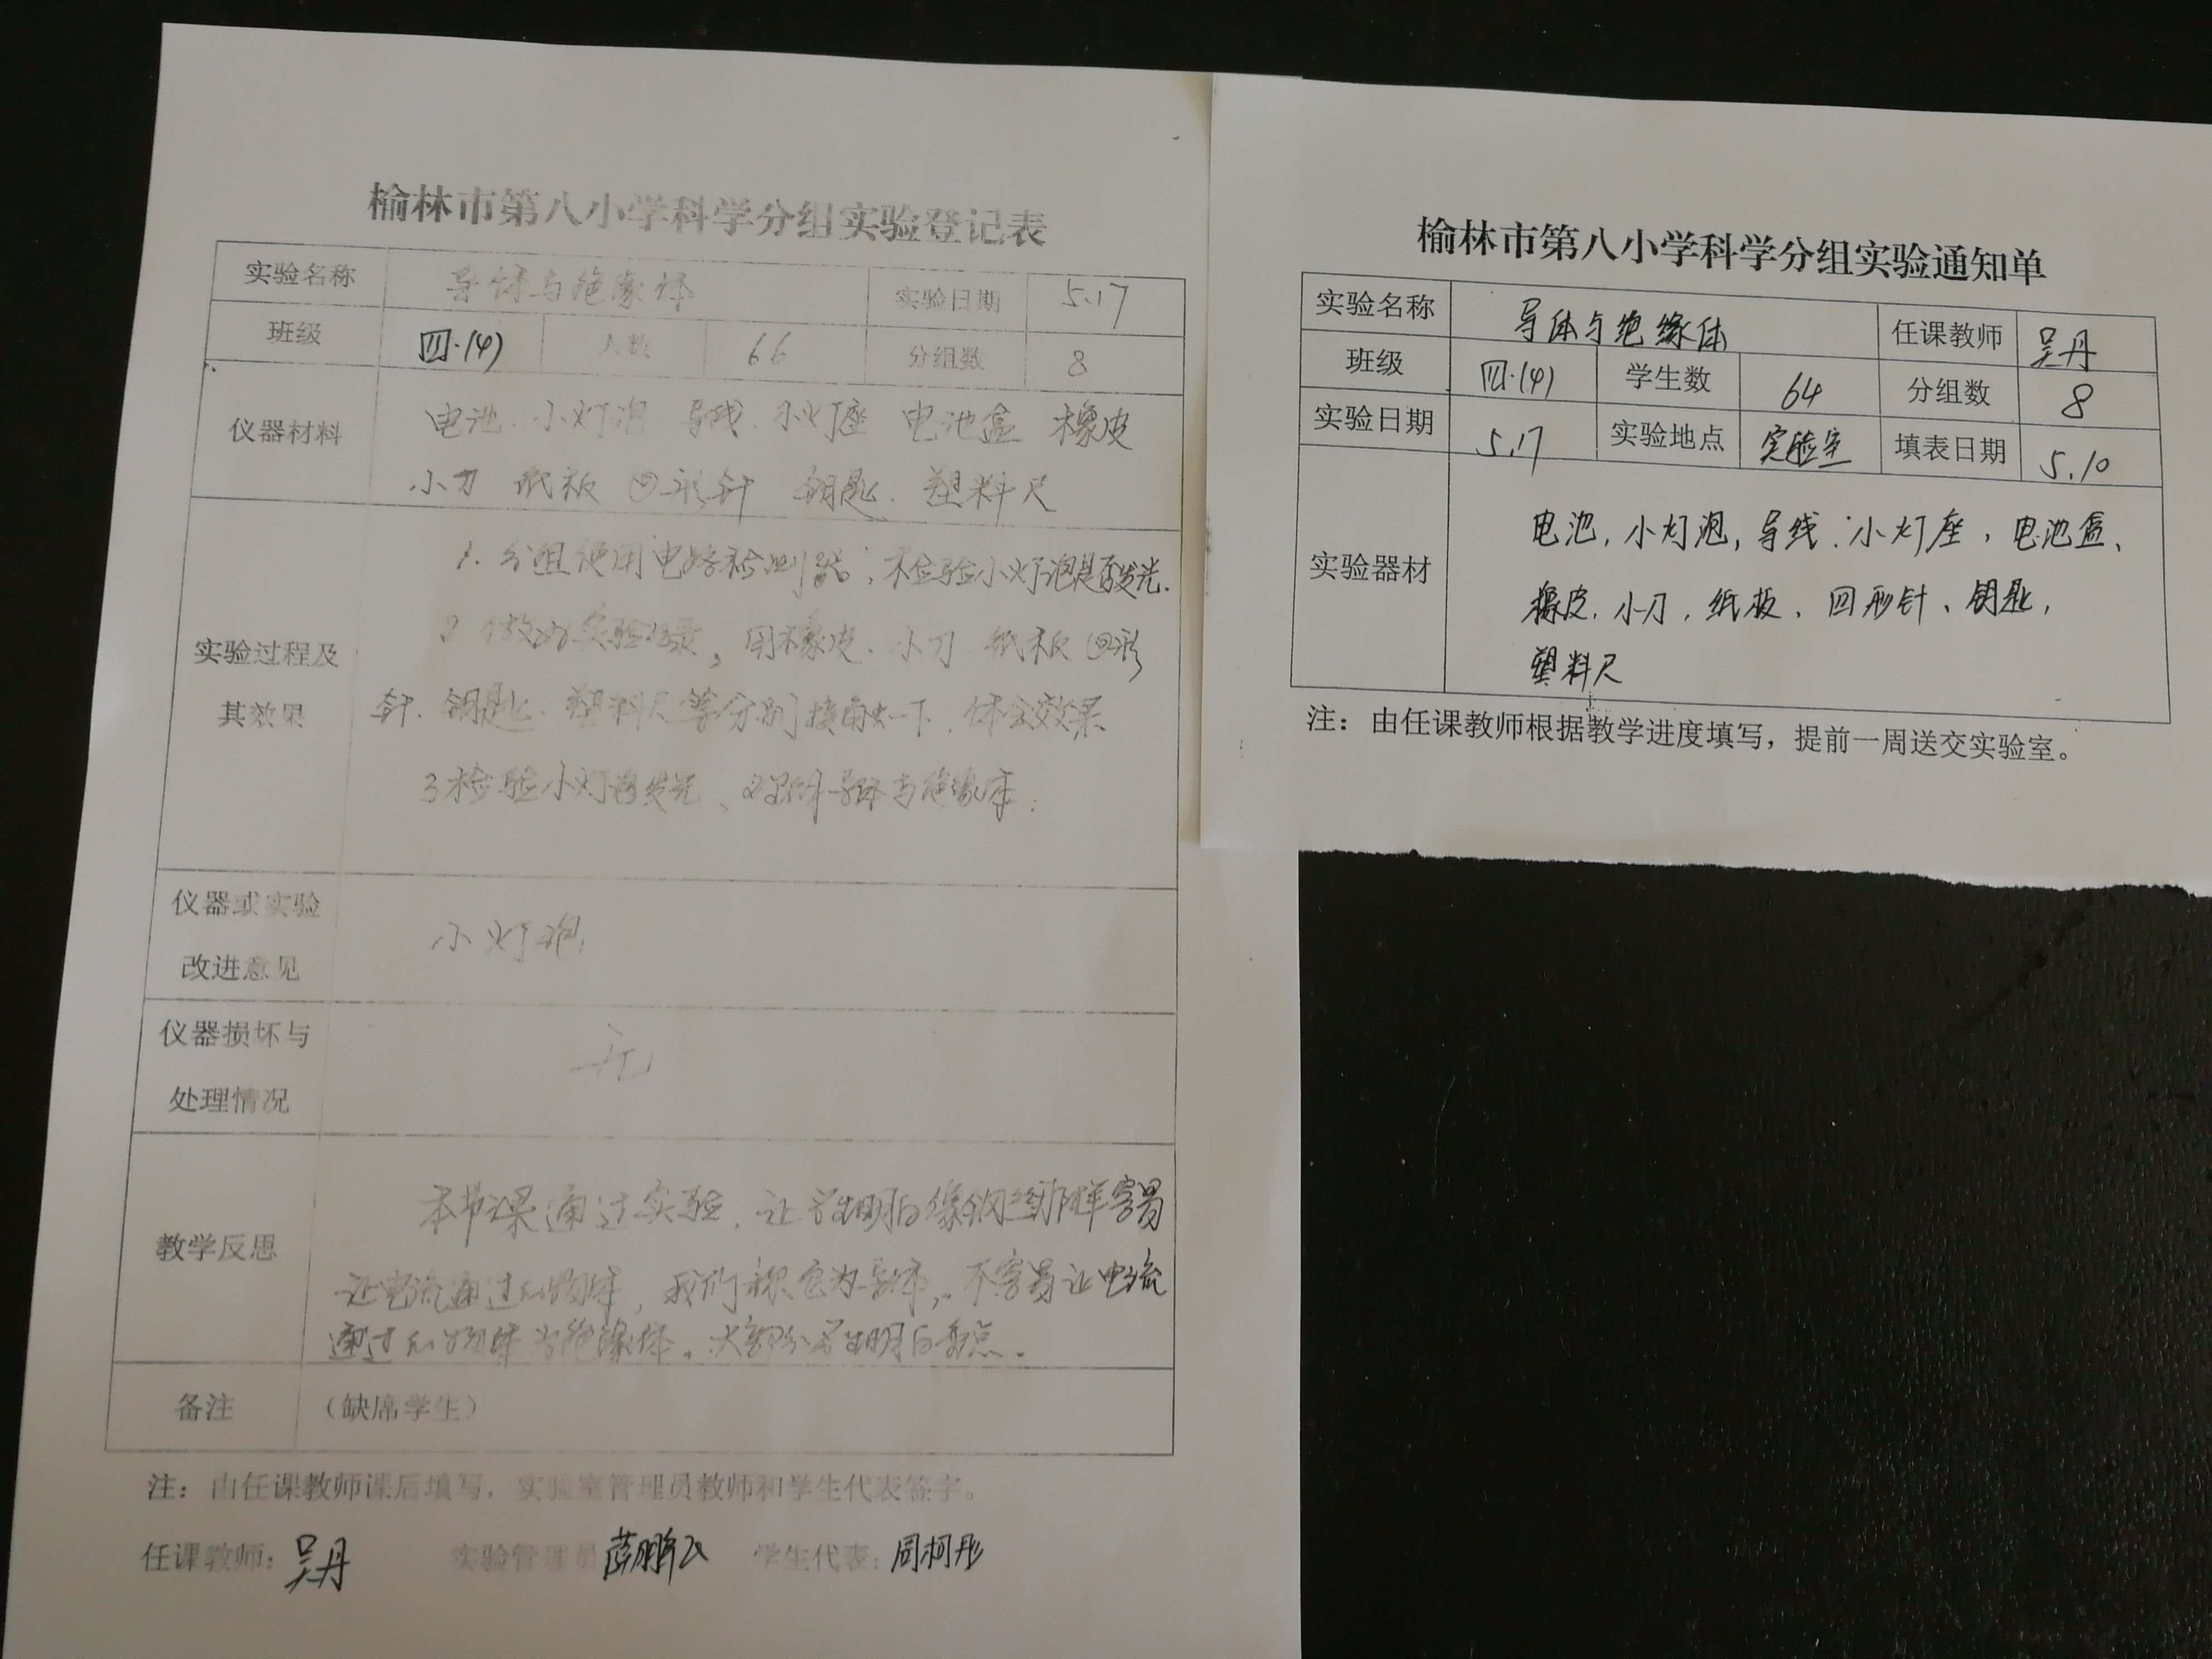 榆林市第八小学科学分组实验登记表
实验名称 导体与绝缘体 实验日期 5.17
班级 四·(4) 人数 66 分组数 8
仪器材料
电池. 小灯泡 导线. 小灯座 电池盒 橡皮
小刀 纸板 回形针 钥匙. 塑料尺
实验过程及
其效果
1. 分组使用电路检测器, 检验小灯泡是否发光.
2 做好实验记录, 用橡皮、小刀 纸板 回形
针. 钥匙. 塑料尺等分别接触一下. 体会效果
3 检验小灯泡发光、 导体与绝缘体.
仪器或实验
改进意见
小灯泡
仪器损坏与
处理情况
无
教学反思
本节课通过实验, 让学生明白像铜丝那样容易
让电流通过的物体, 我们称它为导体, 不容易让电流
通过的物体为绝缘体. 大部分学生明白
备注 (缺席学生)
注: 由任课教师课后填写, 实验室管理员教师和学生代表签字。
任课教师: 吴丹 实验管理员 学生代表: 周柯彤
榆林市第八小学科学分组实验通知单
实验名称 导体与绝缘体 任课教师 吴丹
班级 四·(4) 学生数 64 分组数 8
实验日期 5.17 实验地点 实验室 填表日期 5.10
实验器材
电池, 小灯泡, 导线. 小灯座, 电池盒、
橡皮. 小刀, 纸板、 回形针、钥匙,
塑料尺
注: 由任课教师根据教学进度填写, 提前一周送交实验室。